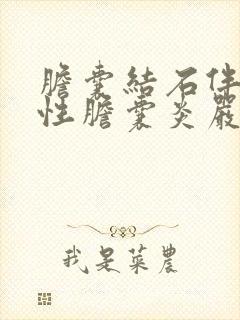 膽囊結石伴
性膽囊炎嚴
我是菜農